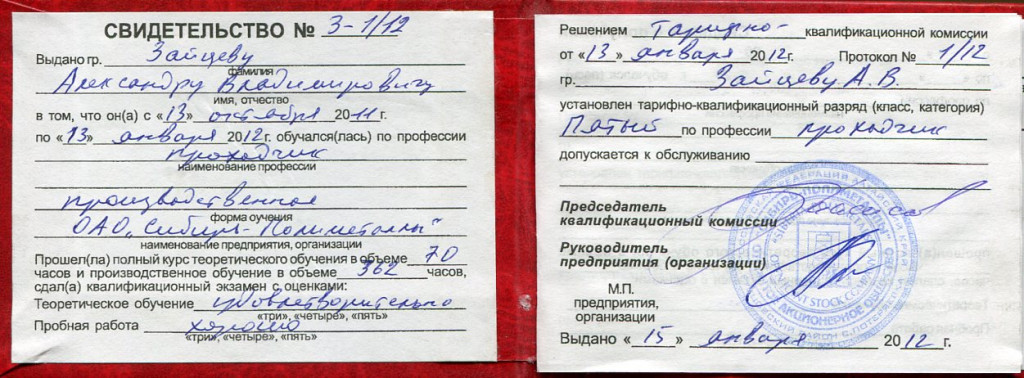 СВИДЕТЕЛЬСТВО № 3-1/12
Выдано гр. Зайцеву
фамилия
Александру Владимировичу
имя, отчество
в том, что он(а) с «13» октября 2011 г.
по «13» января 2012 г. обучался(лась) по профессии
проходчик
наименование профессии
производственная
форма оучения
ОАО „Сибирь-Полиметаллы"
наименование предприятия, организации
Прошел(ла) полный курс теоретического обучения в объеме 70
часов и производственное обучение в объеме 362 часов,
сдал(а) квалификационный экзамен с оценками:
Теоретическое обучение удовлетворительно
«три», «четыре», «пять»
Пробная работа хорошо
«три», «четыре», «пять»
Решением Тарифно- квалификационной комиссии
от «13» января 2012 г. Протокол № 1/12
гр. Зайцеву А.В.
установлен тарифно-квалификационный разряд (класс, категория)
Пятый по профессии проходчик
допускается к обслуживанию
Председатель
квалификационной комиссии
Руководитель
предприятия (организации)
М.П.
предприятия,
организации
Выдано «15» января 2012 г.